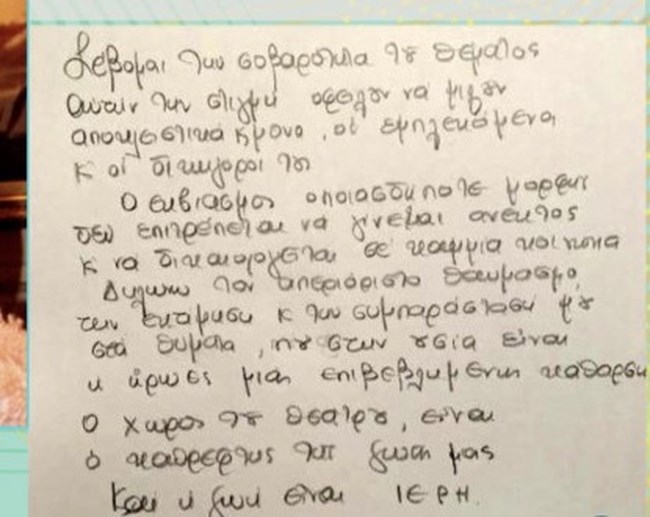 Σέβομαι την σοβαρότητα τȣ θέματος
αυτήν την στιγμή οφείλȣν να μιλȣν
αποκλειστικά κ μόνο, οι εμπλεκόμενοι
κ οι δικηγόροι τȣς
Ο εκβιασμός οποιασδήποτε μορφής
δεν επιτρέπεται να γίνεται ανεκτός
κ να δικαιολογείται σε καμμία κοινωνία
Δηλώνω τον απεριόριστο θαυμασμό,
την εκτίμηση κ την συμπαράσταση μȣ
στα θύματα, πȣ στην ȣσία είναι
οι ήρωες μιας επιβεβλημένης κάθαρσης
Ο χώρος τȣ θεάτρȣ, είναι
ο καθρέφτης της ζωής μας
Και η ζωή είναι ΙΕΡΗ.